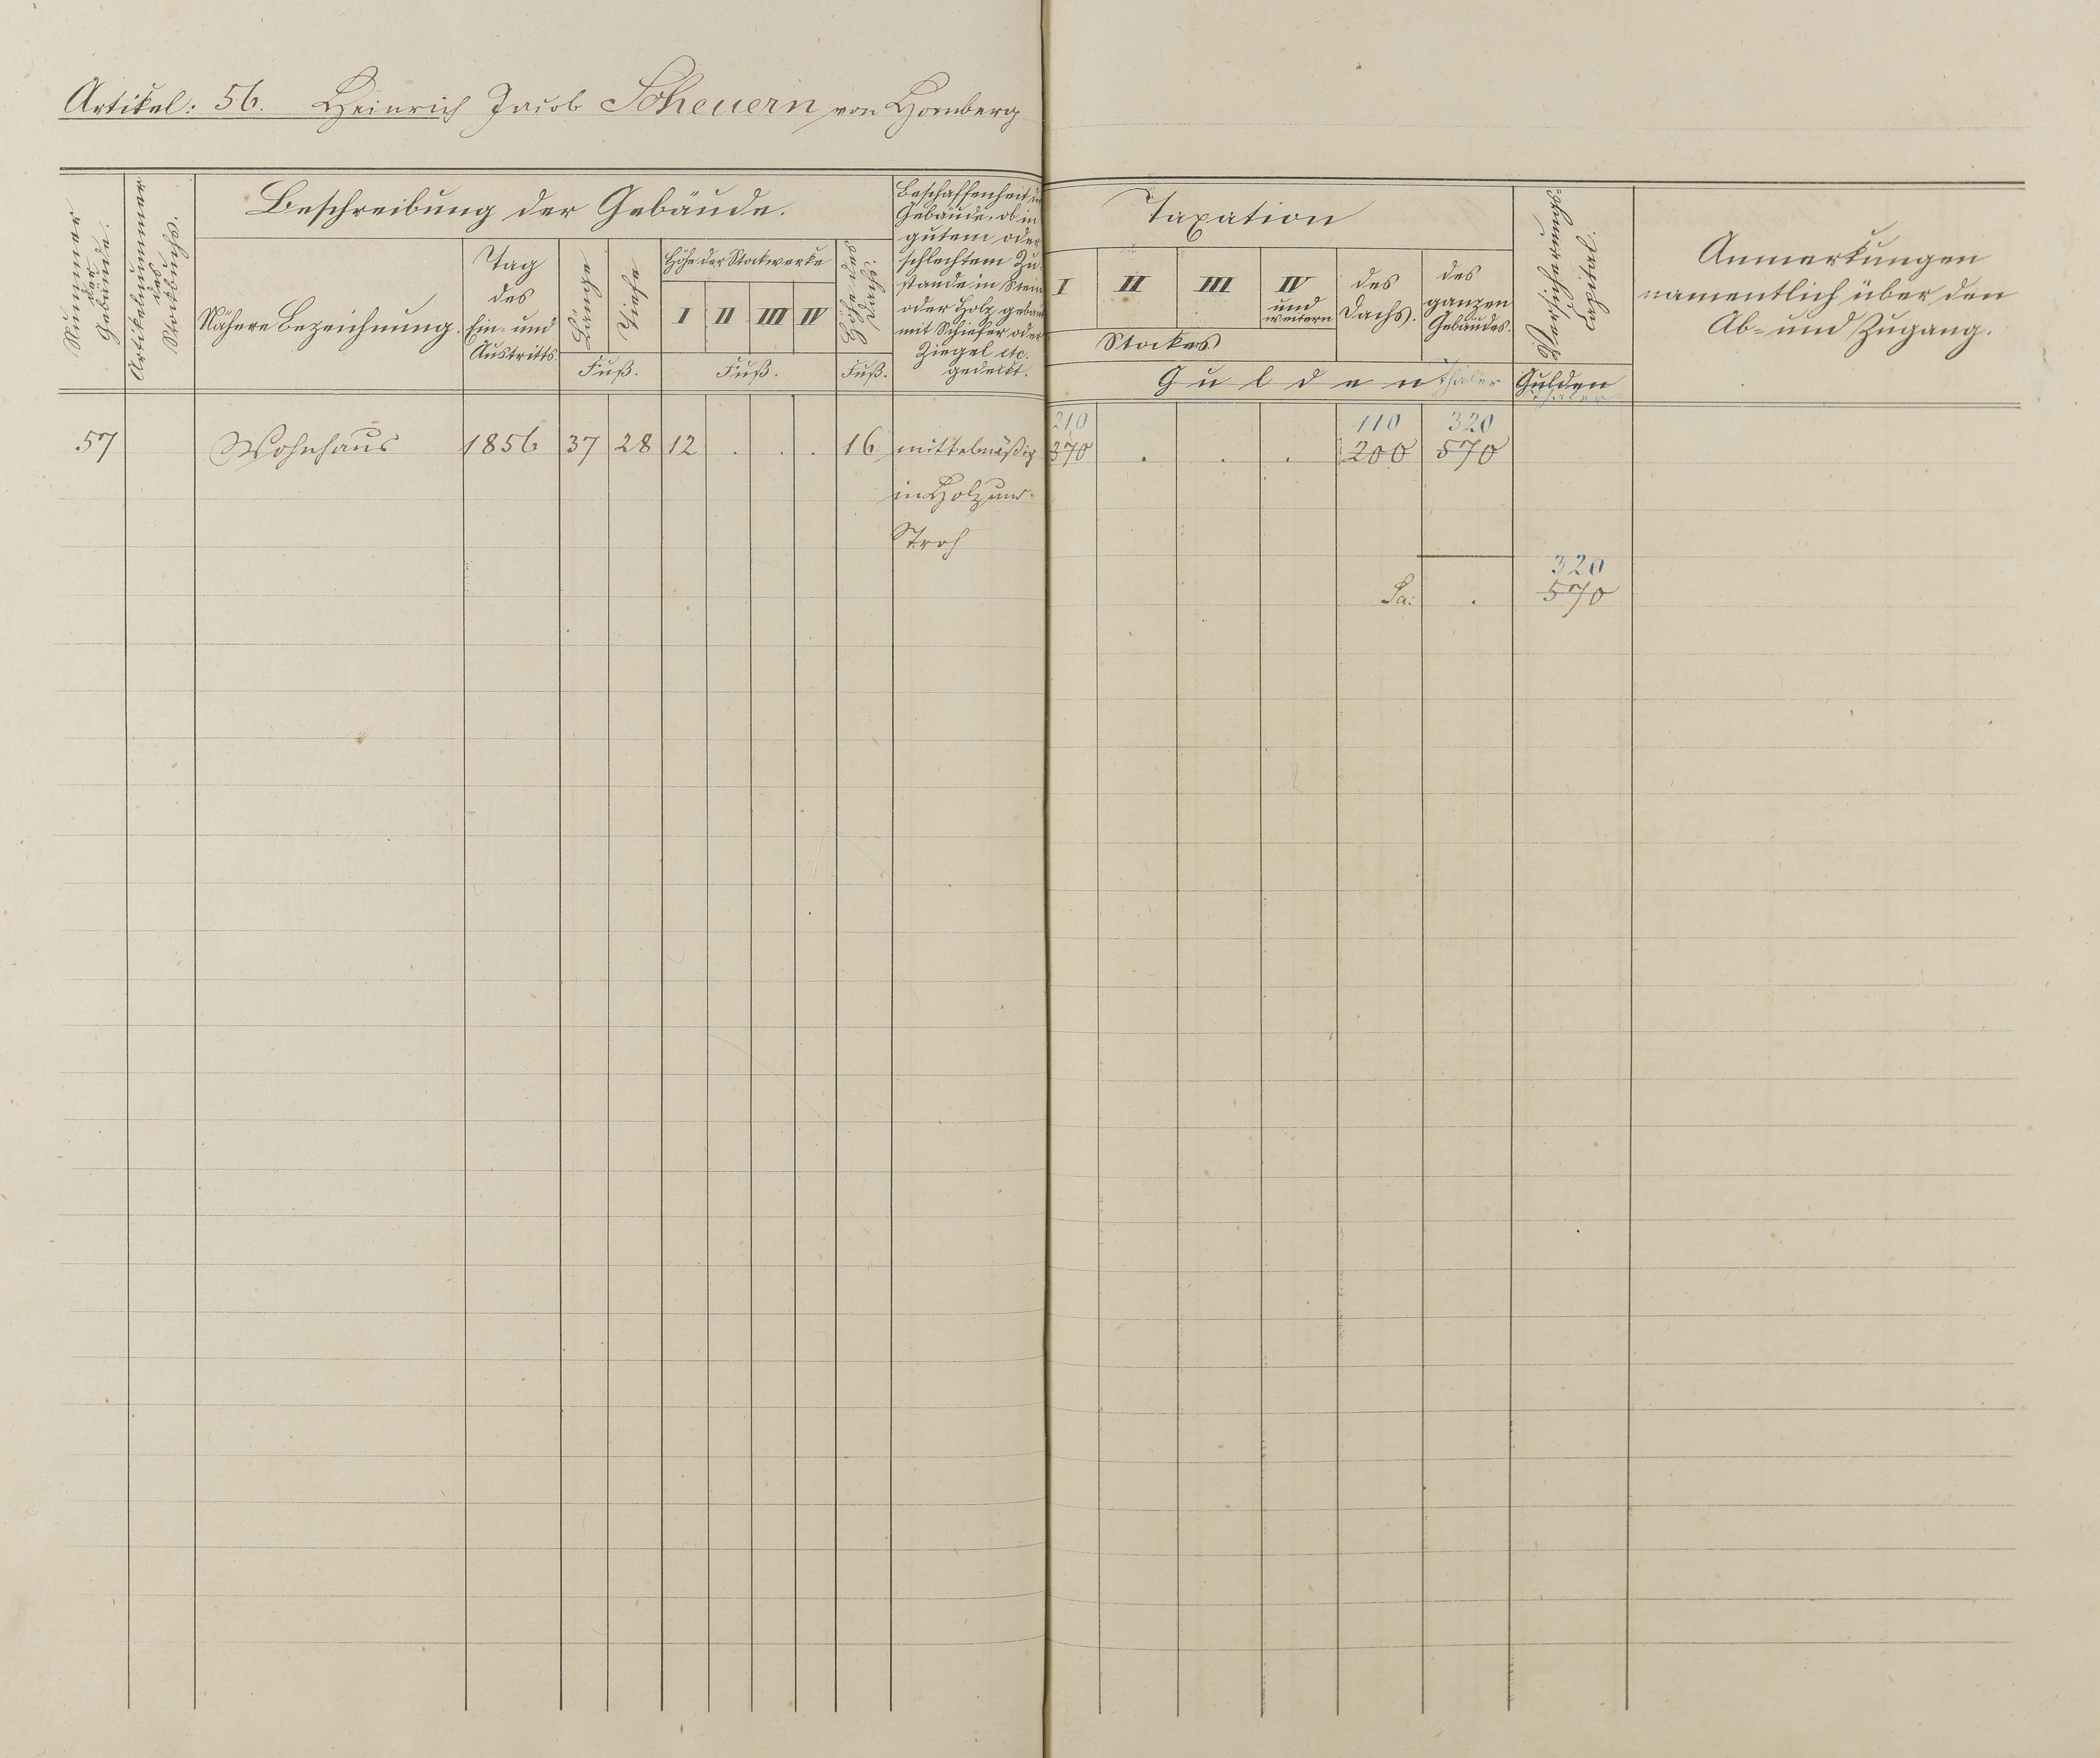 Artikel: 56. Heinrich Jacob Scheuern von Homberg
Nummer der Gebäude.
Artikelnummer des Stockbuchs.
Beschreibung der Gebäude.
Nähere Bezeichnung.
Tag des Ein- und Austritts
Länge
Tiefe
Fuß.
Höhe der Stockwerke
I II III IV
Fuß.
Höhe des Dachs.
Fuß.
Beschaffenheit der
Gebäude, ob in
gutem oder
schlechtem Zu-
stande in Stein
oder Holz gebaut
mit Schiefer oder
Ziegel etc.
gedeckt.
Taxation
I II III IV und weitern
Stockes
des Dachs.
des ganzen Gebäudes.
Gulden Thaler
Versicherungs-Capital.
Gulden
Thaler
Anmerkungen
namentlich über den
Ab- und Zugang.
210 110 320
57 Wohnhaus 1856 37 28 12 . . . 16 mittelmäßig 370 . . . 200 570
in Holz und
Stroh
320
Sa: . 570